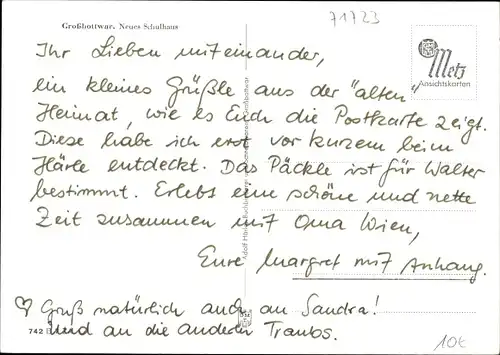 Großbottwar. Neues Schulhaus
71723
Metz
Ansichtskarten
Ihr Lieben miteinander,
ein kleines Grüßle aus der "alten"
Heimat, wie es Euch die Postkarte zeigt.
Diese habe ich erst vor kurzem beim
Härle entdeckt. Das Päckle ist für Walter
bestimmt. Erlebt eine schöne und nette
Zeit zusammen mit Oma Wien,
Eure Margret mit Anhang.
♡ Gruß natürlich auch an Sandra!
und an die anderen Traubs.
742
10€